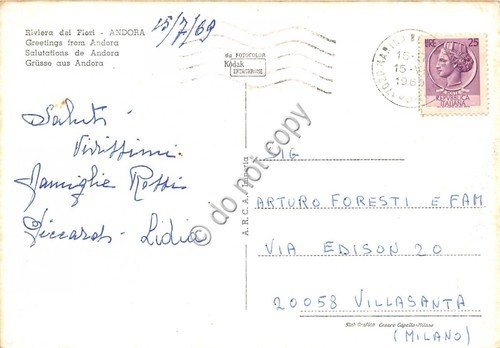 Riviera dei Fiori - ANDORA
Greetings from Andora
Salutations de Andora
Grüsse aus Andora
15/7/69
da FOTOCOLOR
Kodak
EKTACHROME
LIRE 25
REPVBBLICA
ITALIANA
Saluti
Vivissimi
Famiglie Rossi
Riccardo - Lidia
A.R.C.A.
© do not copy
SIG
ARTURO FORESTI E FAM
VIA EDISON 20
20058 VILLASANTA
(MILANO)
Stab Grafico Cesare Capello-Milano